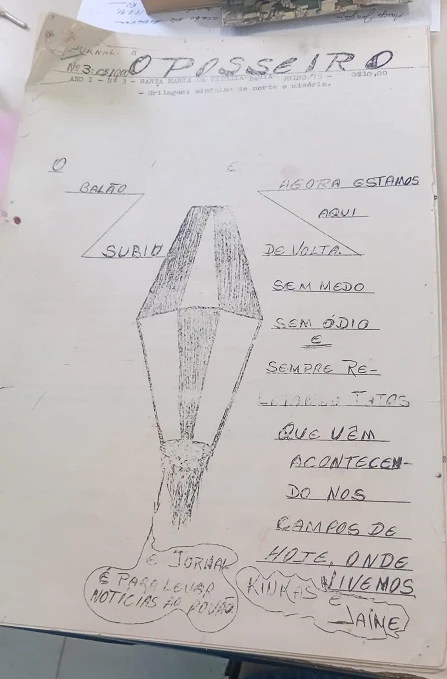 JORNAL
Nº 3 O POSSEIRO
ANO I - Nº 3 - SANTA MARIA DA VITÓRIA BAHIA JUNHO/79 - CR$10,00
- Grilagem: sintoma de morte e miséria.
O
BALÃO
SUBIO
E
AGORA ESTAMOS
AQUI
DE VOLTA.
SEM MEDO
SEM ÓDIO
E
SEMPRE RE-
FATOS
QUE VÊM
ACONTECEN-
DO NOS
CAMPOS DE
HOJE, ONDE
VIVEMOS
E JORNAL
É PARA LEVAR
NOTÍCIAS AO POVÃO
KINKAS E
JAINE